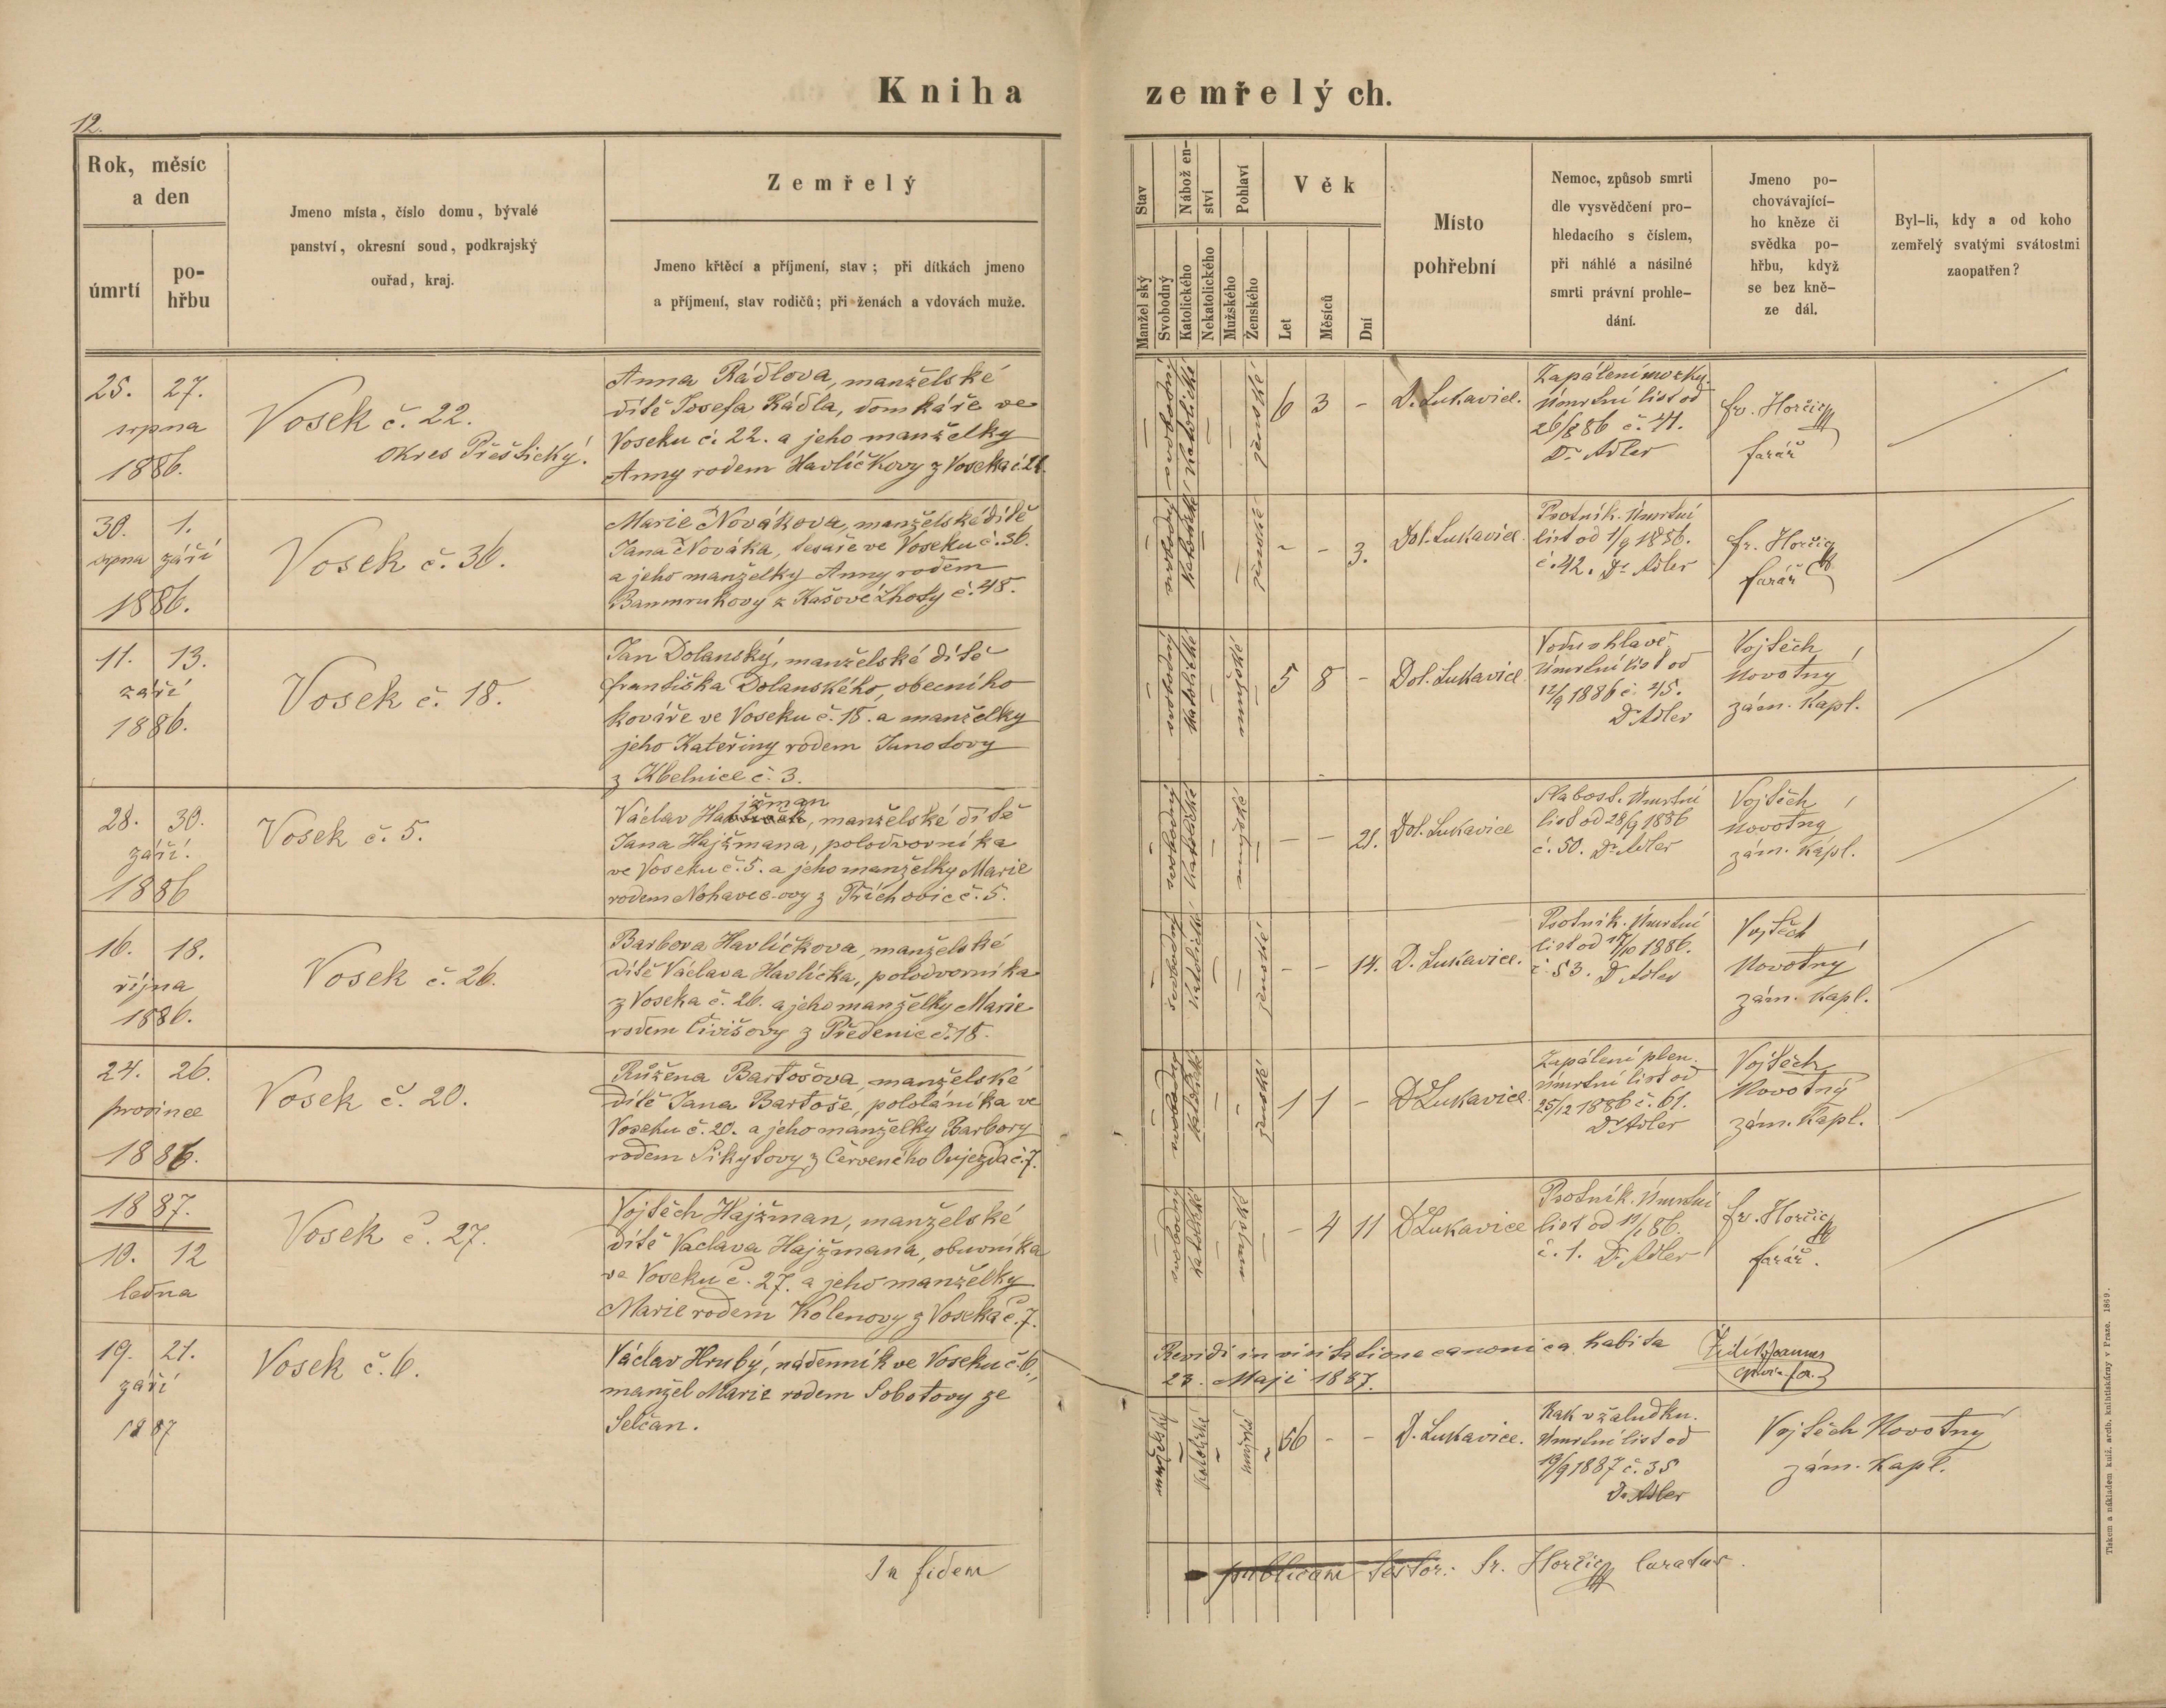 Kniha zemřelých.
12.
Rok, měsíc
a den
úmrtí
po-
hřbu
Jmeno místa, číslo domu, bývalé
panství, okresní soud, podkrajský
ouřad, kraj.
Zemřelý
Jmeno křtěcí a příjmení, stav; při dítkách jmeno
a příjmení, stav rodičů; při ženách a vdovách muže.
Stav
Manžel ský
Svobodný
Nábož en-
ství
Katolického
Nekatolického
Pohlaví
Mužského
Ženského
Věk
Let
Měsíců
Dní
Místo
pohřební
Nemoc, způsob smrti
dle vysvědčení pro-
hledacího s číslem,
při náhlé a násilné
smrti právní prohle-
dání.
Jmeno po-
chovávající-
ho kněze či
svědka po-
hřbu, když
se bez kně-
ze dál.
Byl-li, kdy a od koho
zemřelý svatými svátostmi
zaopatřen?
25. 27.
srpna
1886.
Vosek č. 22.
okres Přěštický.
Anna Rádlova, manželské
dítě Josefa Rádla, domkáře ve
Voseku č. 22. a jeho manželky
Anny rodem Havlíčkovy z Voseka č.
svobodný katolické ženské
6 3 -
D. Lukavice.
Zapálení mozku.
Úmrtní list od
26/8 86 č. 41.
Dr Adler
Fr. Horčic
farář
30. 1.
srpna září
1886.
Vosek č. 36.
Marie Novákova, manželské dítě
Jana Nováka, tesaře ve Voseku č. 36.
a jeho manželky Anny rodem
z Kašové Lhoty č. 48.
svobodný katolické ženské
- - 3.
Dol. Lukavice
Psotník. Úmrtní
list od 1/9 1886.
č. 42. Dr Adler
Fr. Horčic
farář
11. 13.
září
1886.
Vosek č. 18.
Jan Dolanský, manželské dítě
Františka Dolanského, obecního
kováře ve Voseku č. 18. a manželky
jeho Kateřiny rodem Janotovy
z Kbelnice č. 3.
svobodný katolické mužské
5 8 -
Dol. Lukavice
Vodu v hlavě
Úmrtní list od
12/9 1886 č. 45.
Dr Adler
Vojtěch
Novotný
zám. kapl.
28. 30.
září.
1886
Vosek č. 5.
jžman
Václav Ha, manželské dítě
Jana Hajžmana, polodvorníka
ve Voseku č. 5. a jeho manželky Marie
rodem Nohavec-ovy z Příchovic č. 5.
svobodný katolické mužské
- - 21.
Dol. Lukavice
Slabost. Úmrtní
list od 28/9 1886
č. 50. Dr Adler
Vojtěch
Novotný
zám. kapl.
16. 18.
října
1886.
Vosek č. 26.
Barbora Havlíčkova, manželské
dítě Václava Havlíčka, polodvorníka
z Voseka č. 26. a jeho manželky Marie
rodem Čivišovy z Předenic č. 18.
svobodný katolické ženské
- - 14.
D. Lukavice.
Psotník. Úmrtní
list od 17/10 1886.
č. 53. Dr Adler
Vojtěch
Novotný
zám. kapl.
24. 26.
prosince
1886.
Vosek č. 20.
Růžena Bartošova, manželské
dítě Jana Bartoše, pololáníka ve
Voseku č. 20. a jeho manželky Barbory
rodem Sikytovy z Červeného Oujezda č. 7.
svobodný katolické ženské
1 1 -
D Lukavice
Zapálení plen.
Úmrtní list od
25/12 1886 č. 61.
Dr Adler
Vojtěch
Novotný
zám. kapl.
1887.
10. 12
ledna
Vosek č. 27.
Vojtěch Hajžman, manželské
dítě Václava Hajžmana, obuvníka
ve Voseku č. 27. a jeho manželky
Marie rodem Kolenovy z Voseka č. 7.
svobodný katolické mužské
- 4 11
D Lukavice
Psotník. Úmrtní
list od 11/1 86.
č. 1. Dr Adler
Fr. Horčic
farář.
Revidi in visitatione canonica habita
23. Maji 1887.
19. 21.
září
1887
Vosek č. 6.
Václav Hrubý, nádenník ve Voseku č. 6,
manžel Marie rodem Sobotovy ze
Selčan.
manželský katolické mužské
56 - -
D. Lukavice.
Rak v žaludku.
Úmrtní list od
19/9 1887 č. 35
Dr Adler
Vojtěch Novotný
zám. kapl.
In fidem publicam testor: Fr. Horčic Curatus.
Tiskem a nákladem kníž. arcib. knihtiskárny v Praze. 1869.